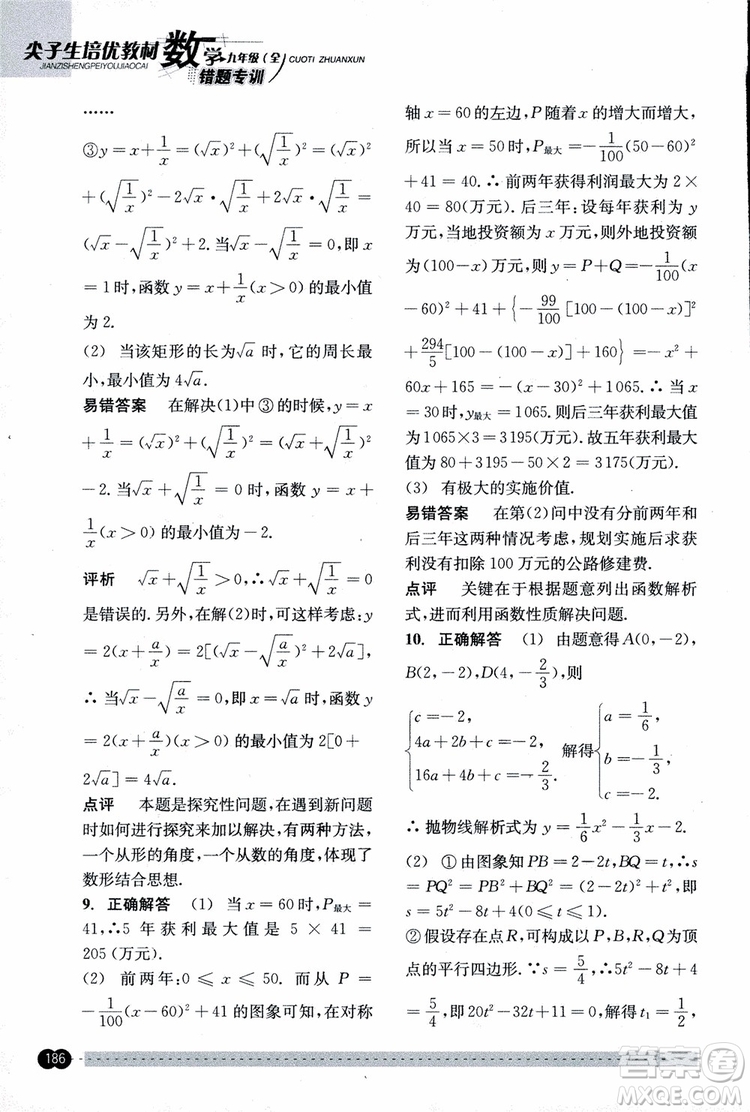 尖子生培优教材 数学 九年级(全)
JIANZISHENGPEIYOUJIAOCAI
错题专训 CUOTI ZHUANXUN
……
③y=x+1/x=(√x)²+(√(1/x))²=(√x)²
+(√(1/x))²-2√x·√(1/x)+2√x·√(1/x)=
(√x-√(1/x))²+2.当√x-√(1/x)=0,即x
=1时,函数y=x+1/x(x>0)的最小值
为2.
(2) 当该矩形的长为√a时,它的周长最
小,最小值为4√a.
易错答案 在解决(1)中③的时候,y=x
+1/x=(√x)²+(√(1/x))²=(√x+√(1/x))²
-2.当√x+√(1/x)=0时,函数y=x+
1/x(x>0)的最小值为-2.
评析 √x+√(1/x)>0,∴√x+√(1/x)=0
是错误的.另外,在解(2)时,可这样考虑:y
=2(x+a/x)=2[(√x)²+(√(a/x))²],
∴当√x-√(a/x)=0,即x=√a时,函数y
=2(x+a/x)(x>0)的最小值为2[0+
2√a]=4√a.
点评 本题是探究性问题,在遇到新问题
时如何进行探究来加以解决,有两种方法,
一个从形的角度,一个从数的角度,体现了
数形结合思想.
9. 正确解答 (1) 当x=60时,P最大=
41,∴5年获利最大值是5×41=
205(万元).
(2) 前两年:0≤x≤50.而从P=
-1/100(x-60)²+41的图象可知,在对称
轴x=60的左边,P随着x的增大而增大,
所以当x=50时,P最大=-1/100(50-60)²
+41=40.∴前两年获得利润最大为2×
40=80(万元).后三年:设每年获利为y
万元,当地投资额为x万元,则外地投资额
为(100-x)万元,则y=P+Q=-1/100(x
-60)²+41+{-99/100[100-(100-x)]²
+294/5[100-(100-x)]+160}=-x²+
60x+165=-(x-30)²+1065.∴当x
=30时,y最大=1065.则后三年获利最大值
为1065×3=3195(万元).故五年获利最大
值为80+3195-50×2=3175(万元).
(3) 有极大的实施价值.
易错答案 在第(2)问中没有分前两年和
后三年这两种情况考虑,规划实施求获
利没有扣除100万元的公路修建费.
点评 关键在于根据题意列出函数解析
式,进而利用函数性质解决问题.
10. 正确解答 (1) 由题意得A(0,-2),
B(2,-2),D(4,-2/3),则
{c=-2, 4a+2b+c=-2, 16a+4b+c=-2/3. 解得{a=1/6, b=-1/3, c=-2.
∴抛物线解析式为y=1/6x²-1/3x-2.
(2) ①由图象知PB=2-2t,BQ=t,∴s
=PQ²=PB²+BQ²=(2-2t)²+t²,即
s=5t²-8t+4(0≤t≤1).
②假设存在点R,可构成以P、B、R、Q为顶
点的平行四边形.∵s=5/4,∴5t²-8t+4
=5/4,即20t²-32t+11=0,解得t₁=
186
答案圈
MXQE.COM